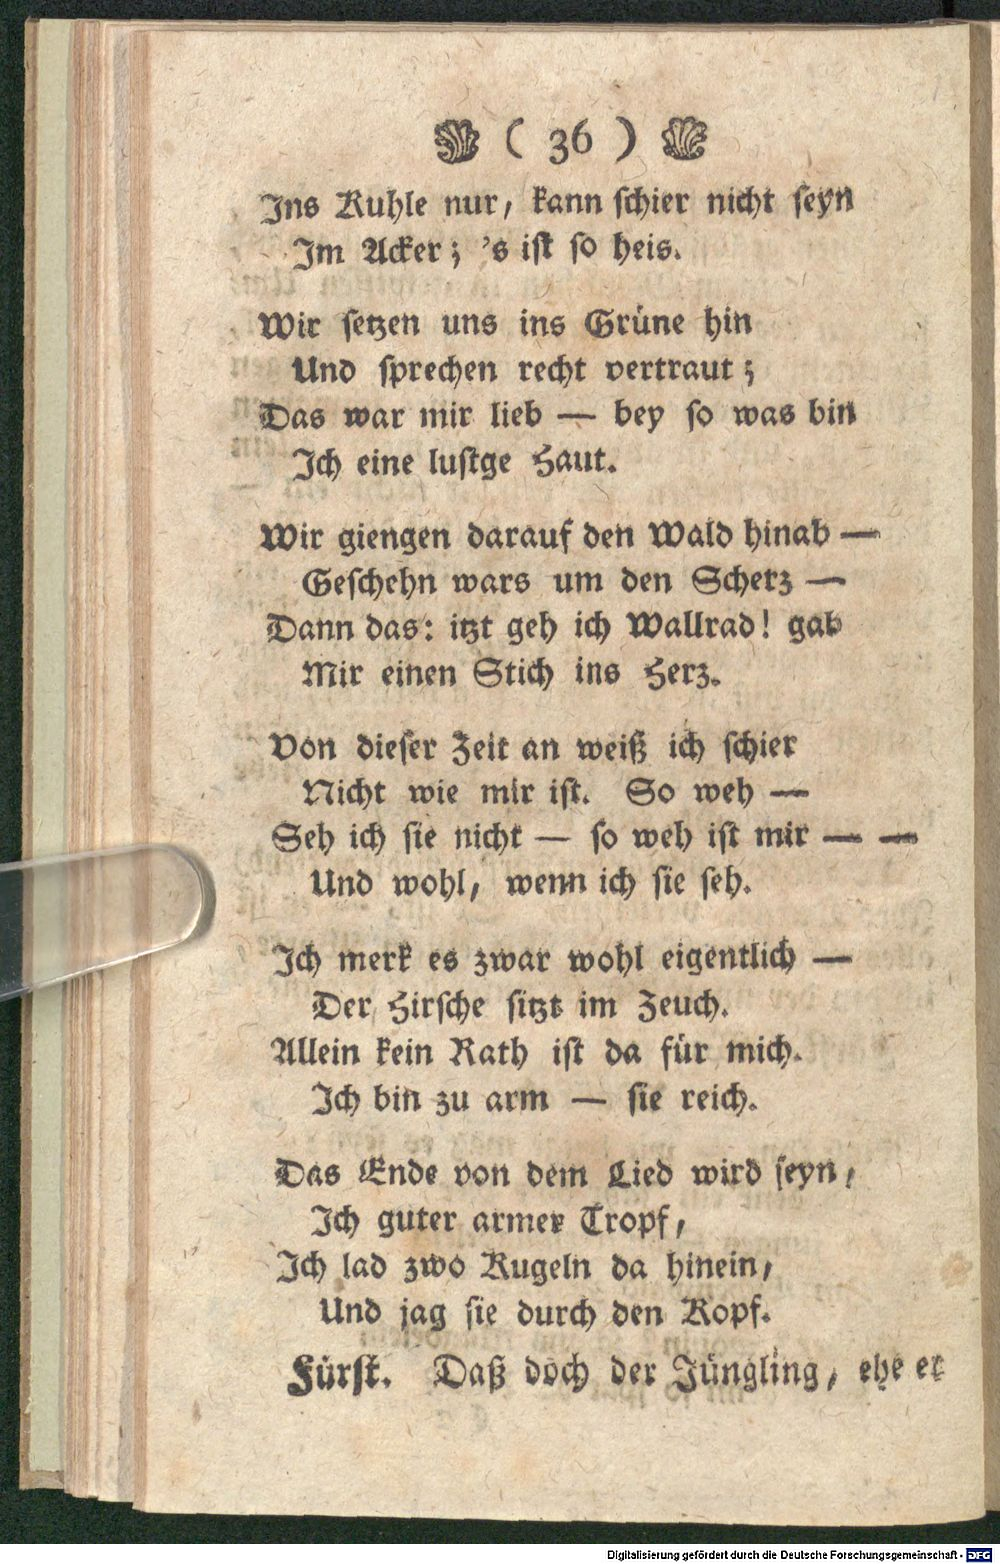 ( 36 )
Ins Kuhle nur, kann schier nicht seyn
Im Acker; 's ist so heis.
Wir setzen uns ins Grüne hin
Und sprechen recht vertraut;
Das war mir lieb — bey so was bin
Ich eine lustge Haut.
Wir giengen darauf den Wald hinab —
Geschehn wars um den Scherz —
Dann das: itzt geh ich Wallrad! gab
Mir einen Stich ins Herz.
Von dieser Zeit an weiß ich schier
Nicht wie mir ist. So weh —
Seh ich sie nicht — so weh ist mir — —
Und wohl, wenn ich sie seh.
Ich merk es zwar wohl eigentlich —
Der Hirsche sitzt im Zeuch.
Allein kein Rath ist da für mich.
Ich bin zu arm — sie reich.
Das Ende von dem Lied wird seyn,
Ich guter armer Tropf,
Ich lad zwo Kugeln da hinein,
Und jag sie durch den Kopf.
Fürst. Daß doch der Jüngling, ehe er
Digitalisierung gefördert durch die Deutsche Forschungsgemeinschaft - DFG